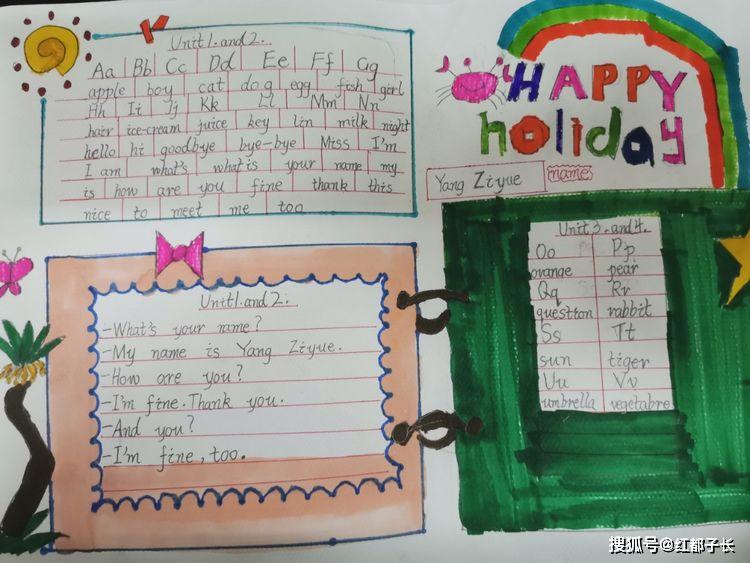 Unit 1. and 2.
Aa Bb Cc Dd Ee Ff Gg
apple boy cat dog egg fish girl
Hh Ii Jj Kk Ll Mm Nn
hair ice-cream juice key lin milk night
hello hi goodbye bye-bye Miss I'm
I am what's what is your name my
is how are you fine thank this
nice to meet me too
HAPPY
holiday
Yang Ziyue name
Unit 1. and 2.
-What's your name?
-My name is Yang Ziyue.
-How are you?
-I'm fine. Thank you.
-And you?
-I'm fine, too.
Unit 3. and 4.
Oo Pp
orange pear
Qq Rr
question rabbit
Ss Tt
sun tiger
Uu Vv
umbrella vegetabre
搜狐号@红都子长